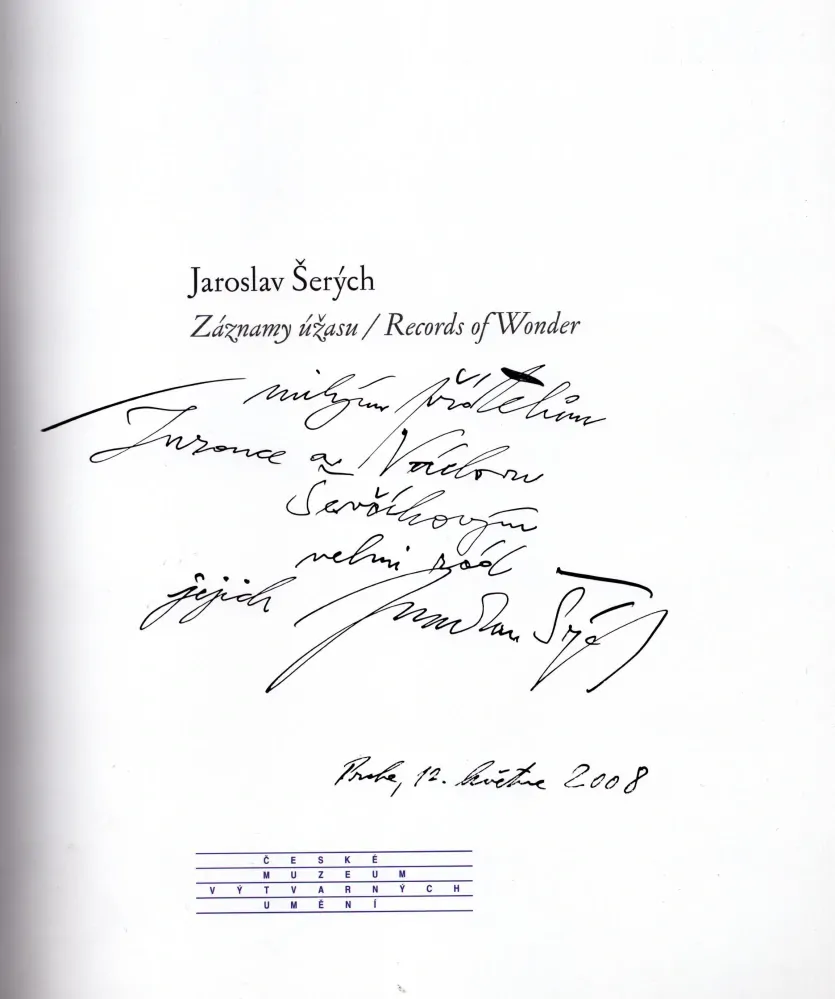 Jaroslav Šerých
Záznamy úžasu / Records of Wonder
milým přátelům
a Václavu
Ševčíkovým
velmi rád
jejich Jaroslav Šerých
Praha, 12. května 2008
ČESKÉ
MUZEUM
VÝTVARNÝCH
UMĚNÍ